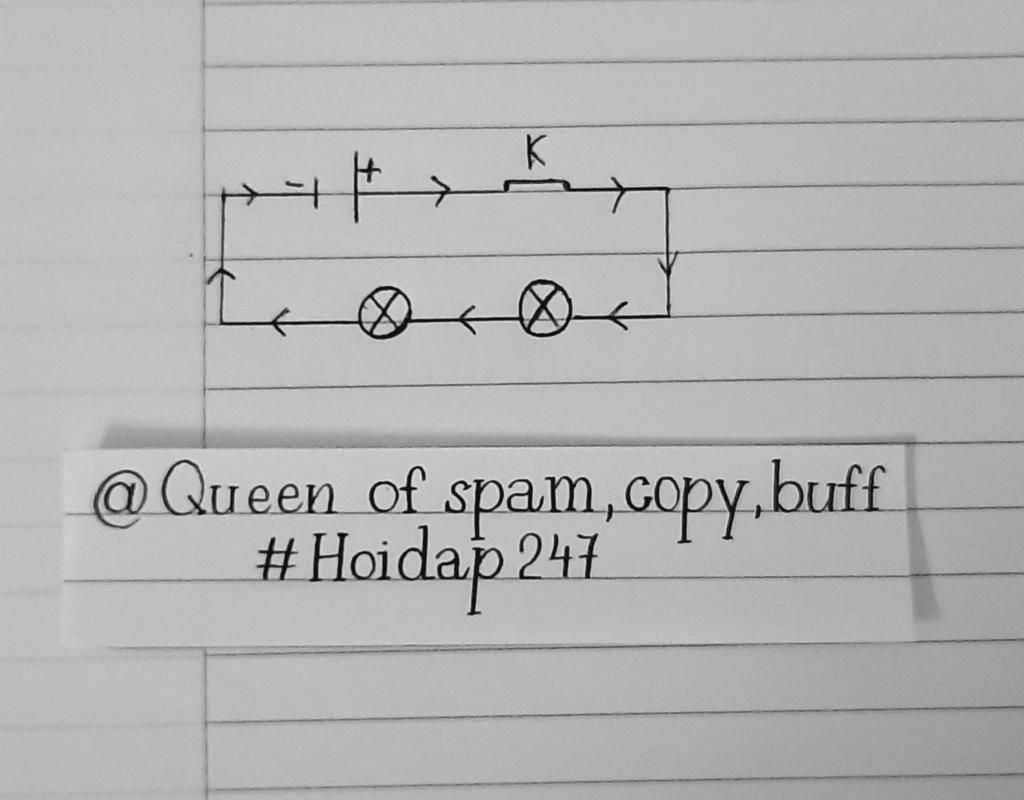 K
- +
@Queen of spam, copy, buff
#Hoidap247